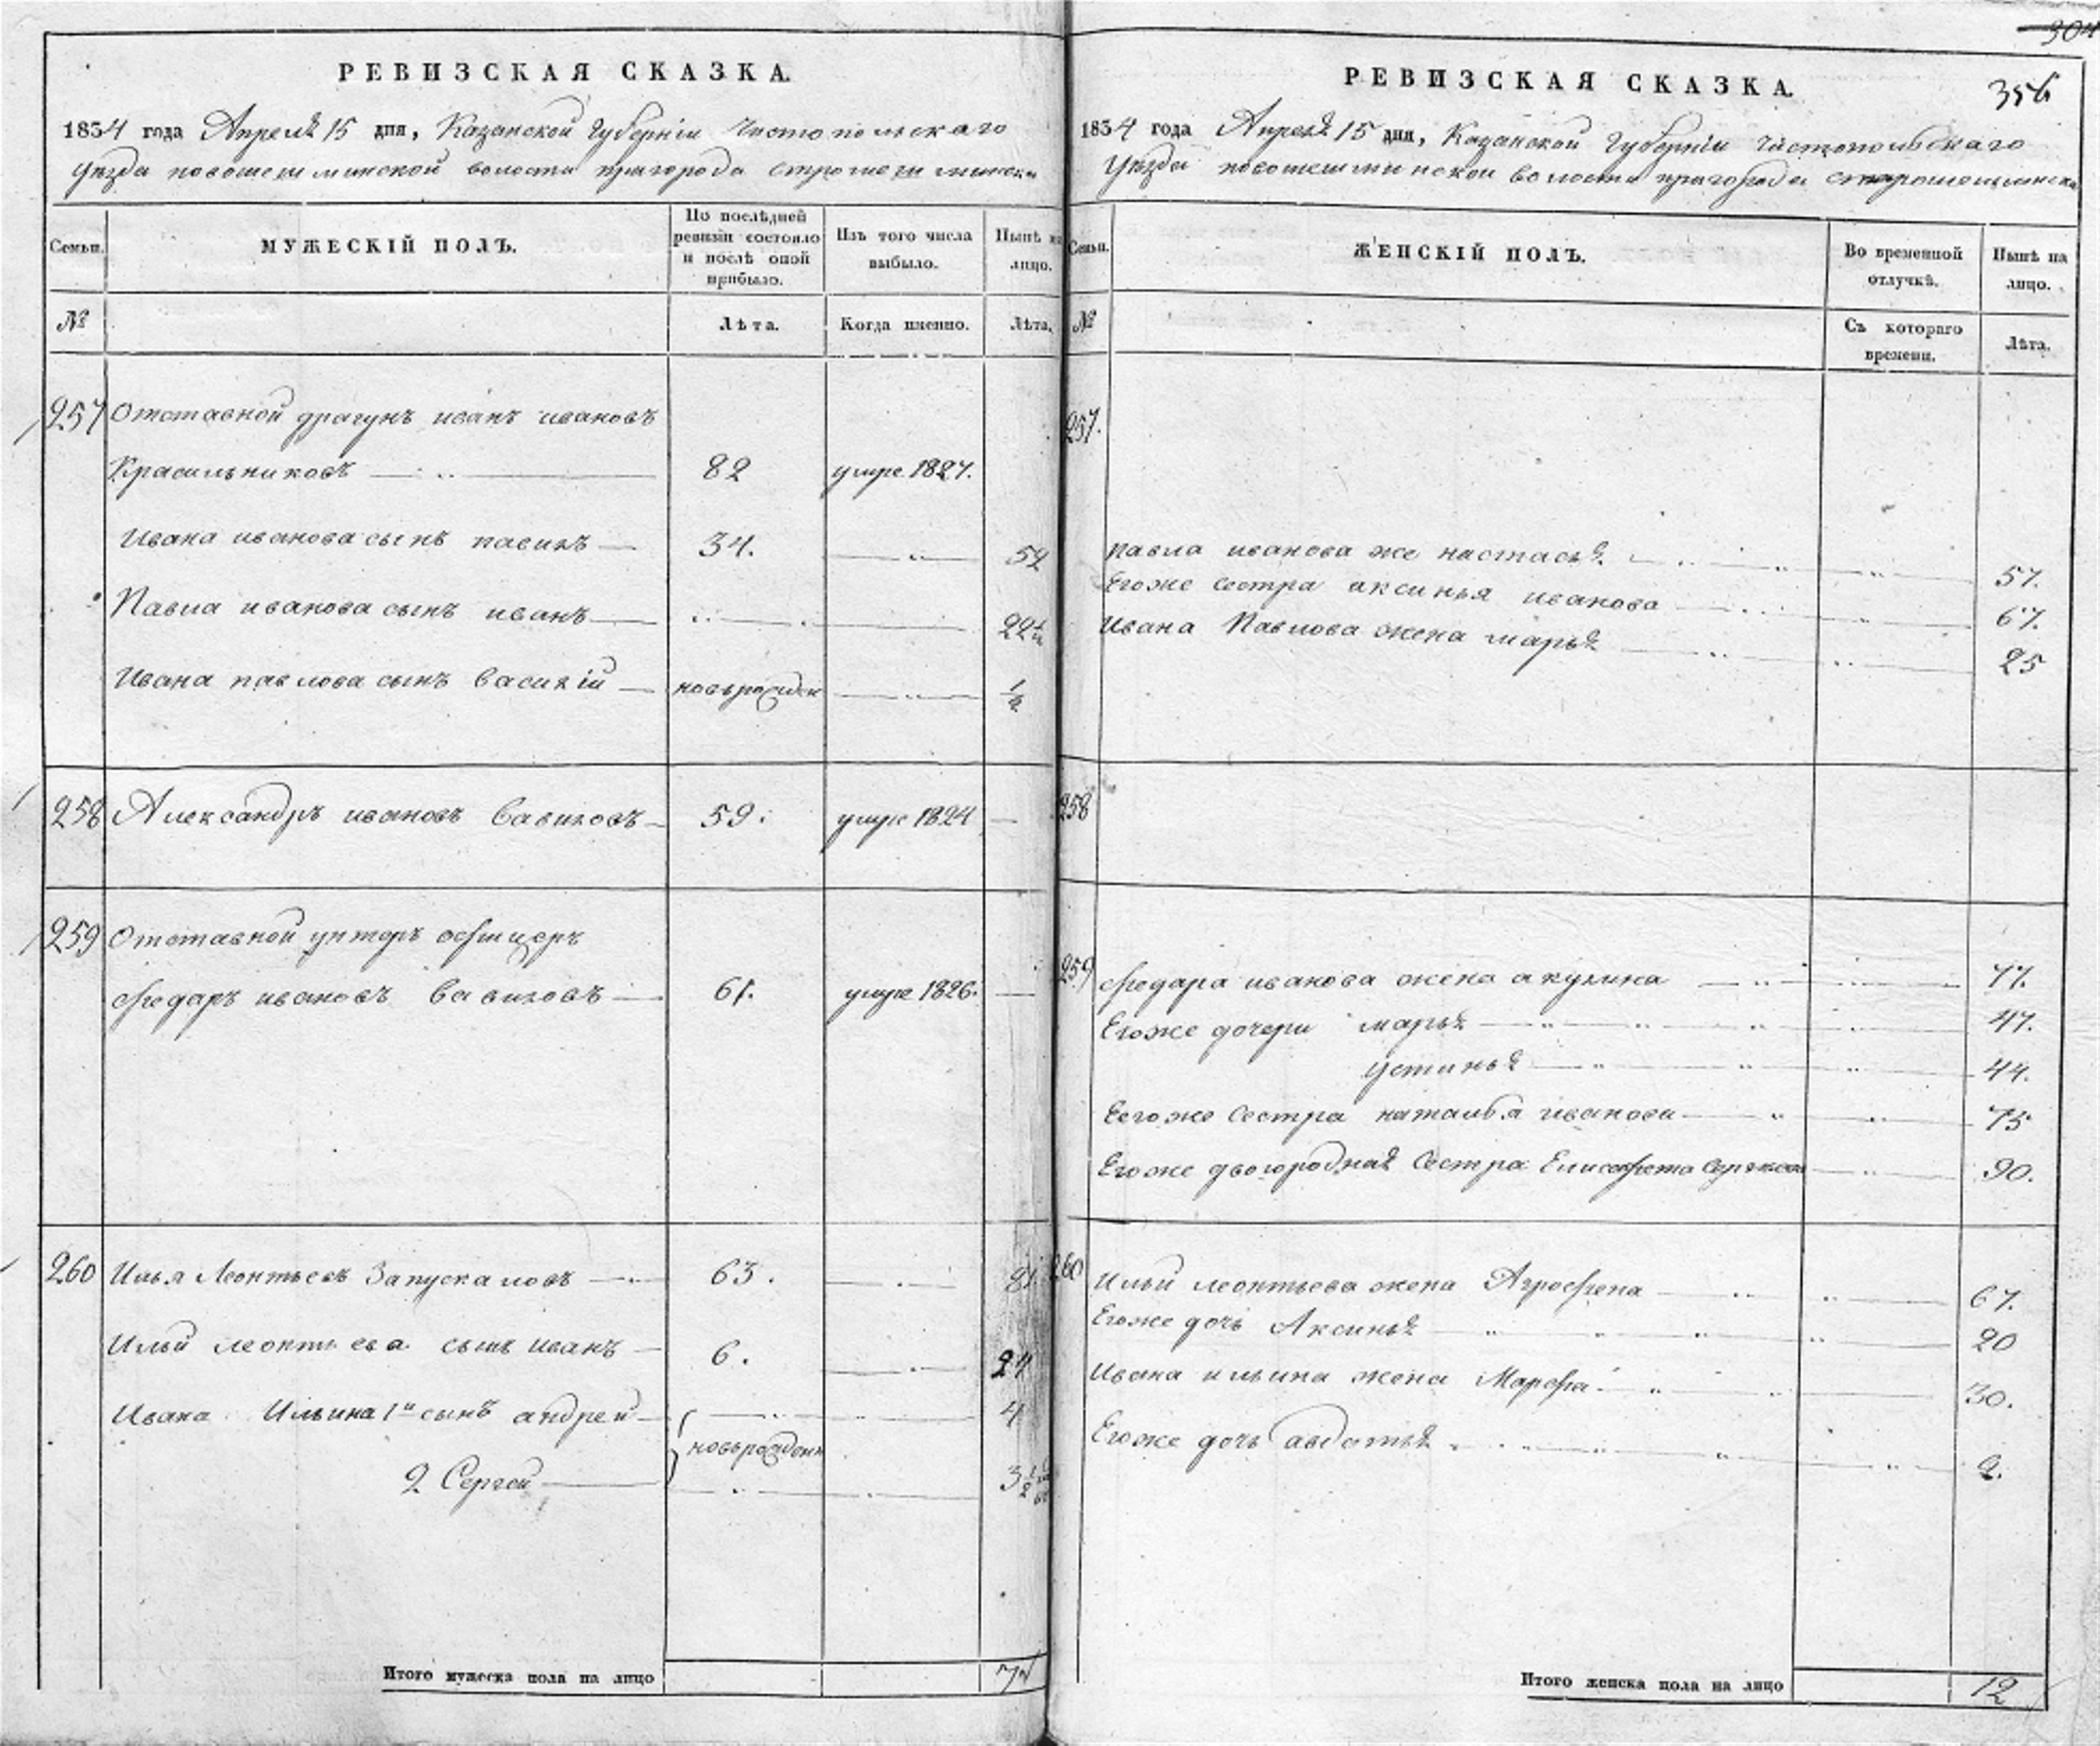 РЕВИЗСКАЯ СКАЗКА.
1834 года Апреля 15 дня, Казанской Губерніи Чистопольскаго
Уезда новошешминской волости пригорода строшешминска
Семьи.
МУЖЕСКІЙ ПОЛЪ.
По послѣдней ревизіи состояло и послѣ оной прибыло.
Изъ того числа выбыло.
Нынѣ на лицо.
№
Лѣта.
Когда именно.
Лѣта.
257 Отставной драгунъ иванъ ивановъ
Красильниковъ 82 умре 1827.
Ивана иванова сынъ павилъ 34. 52
Павла иванова сынъ иванъ 22½
Ивана павлова сынъ василій новърожден ½
258 Александръ ивановъ Вавиловъ 59. умре 1824
259 Отставной унторъ офицеръ
Федаръ ивановъ Вавиловъ 61. умре 1826.
260 Илья Леонтьевъ Запускаловъ 63. 81
Ильи леонтьева сынъ иванъ 6. 24
Ивана Ильина 1й сынъ андрей 4
новърожденн
2 Сергей 3½
Итого мужеска пола на лицо 7
304
356
РЕВИЗСКАЯ СКАЗКА.
1834 года Апреля 15 дня, Казанской Губерніи Чистопольскаго
Уезда новошешминской волости пригорода старошешминска
Семьи.
ЖЕНСКІЙ ПОЛЪ.
Во временной отлучкѣ.
Нынѣ на лицо.
№
Съ котораго времени.
Лѣта.
257.
павла иванова же настасья 57.
Егоже сестра аксинья иванова 67.
Ивана Павлова жена марья 25
258
259 Федара иванова жена акулина 77.
Егоже дочери марья 47.
устинья 44.
Еегоже сестра наталья иванова 75
Егоже двогородная Сестра Елисафета 90.
260 Ильи леонтьева жена Агрофена 67.
Егоже дочь Аксинья 20
Ивана ильина жена Марфа 30.
Егоже дочь авдотья 2.
Итого женска пола на лицо 12